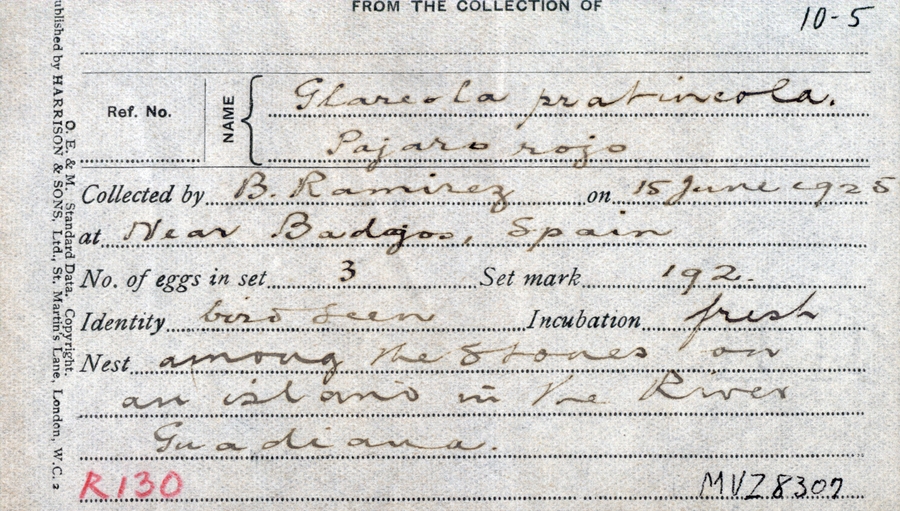 FROM THE COLLECTION OF
10-5
Ref. No.
NAME
Glareola pratincola.
Pajaro rojo
Collected by B. Ramirez on 15 June 1925
at Near Badajos, Spain
No. of eggs in set 3 Set mark 192.
Identity bird seen Incubation fresh
Nest among the stones on
an island in the River
Guadiana.
R130
MVZ 8307
O. E. & M. Standard Data. Copyright.
ublished by HARRISON & SONS, Ltd., St. Martin's Lane, London, W.C. 2